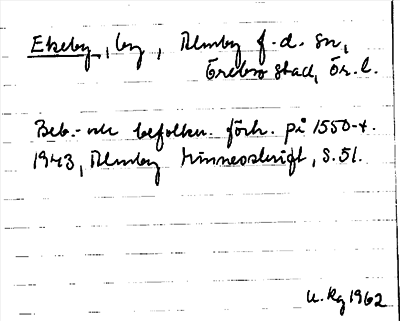 Ekeby, by, Almby f.d. sn,
Örebro stad, Ör. l.
Beb.- och befolkn. förh. på 1550-t.
1943, Almby Minnesskrift, S. 51.
U. Rg 1962